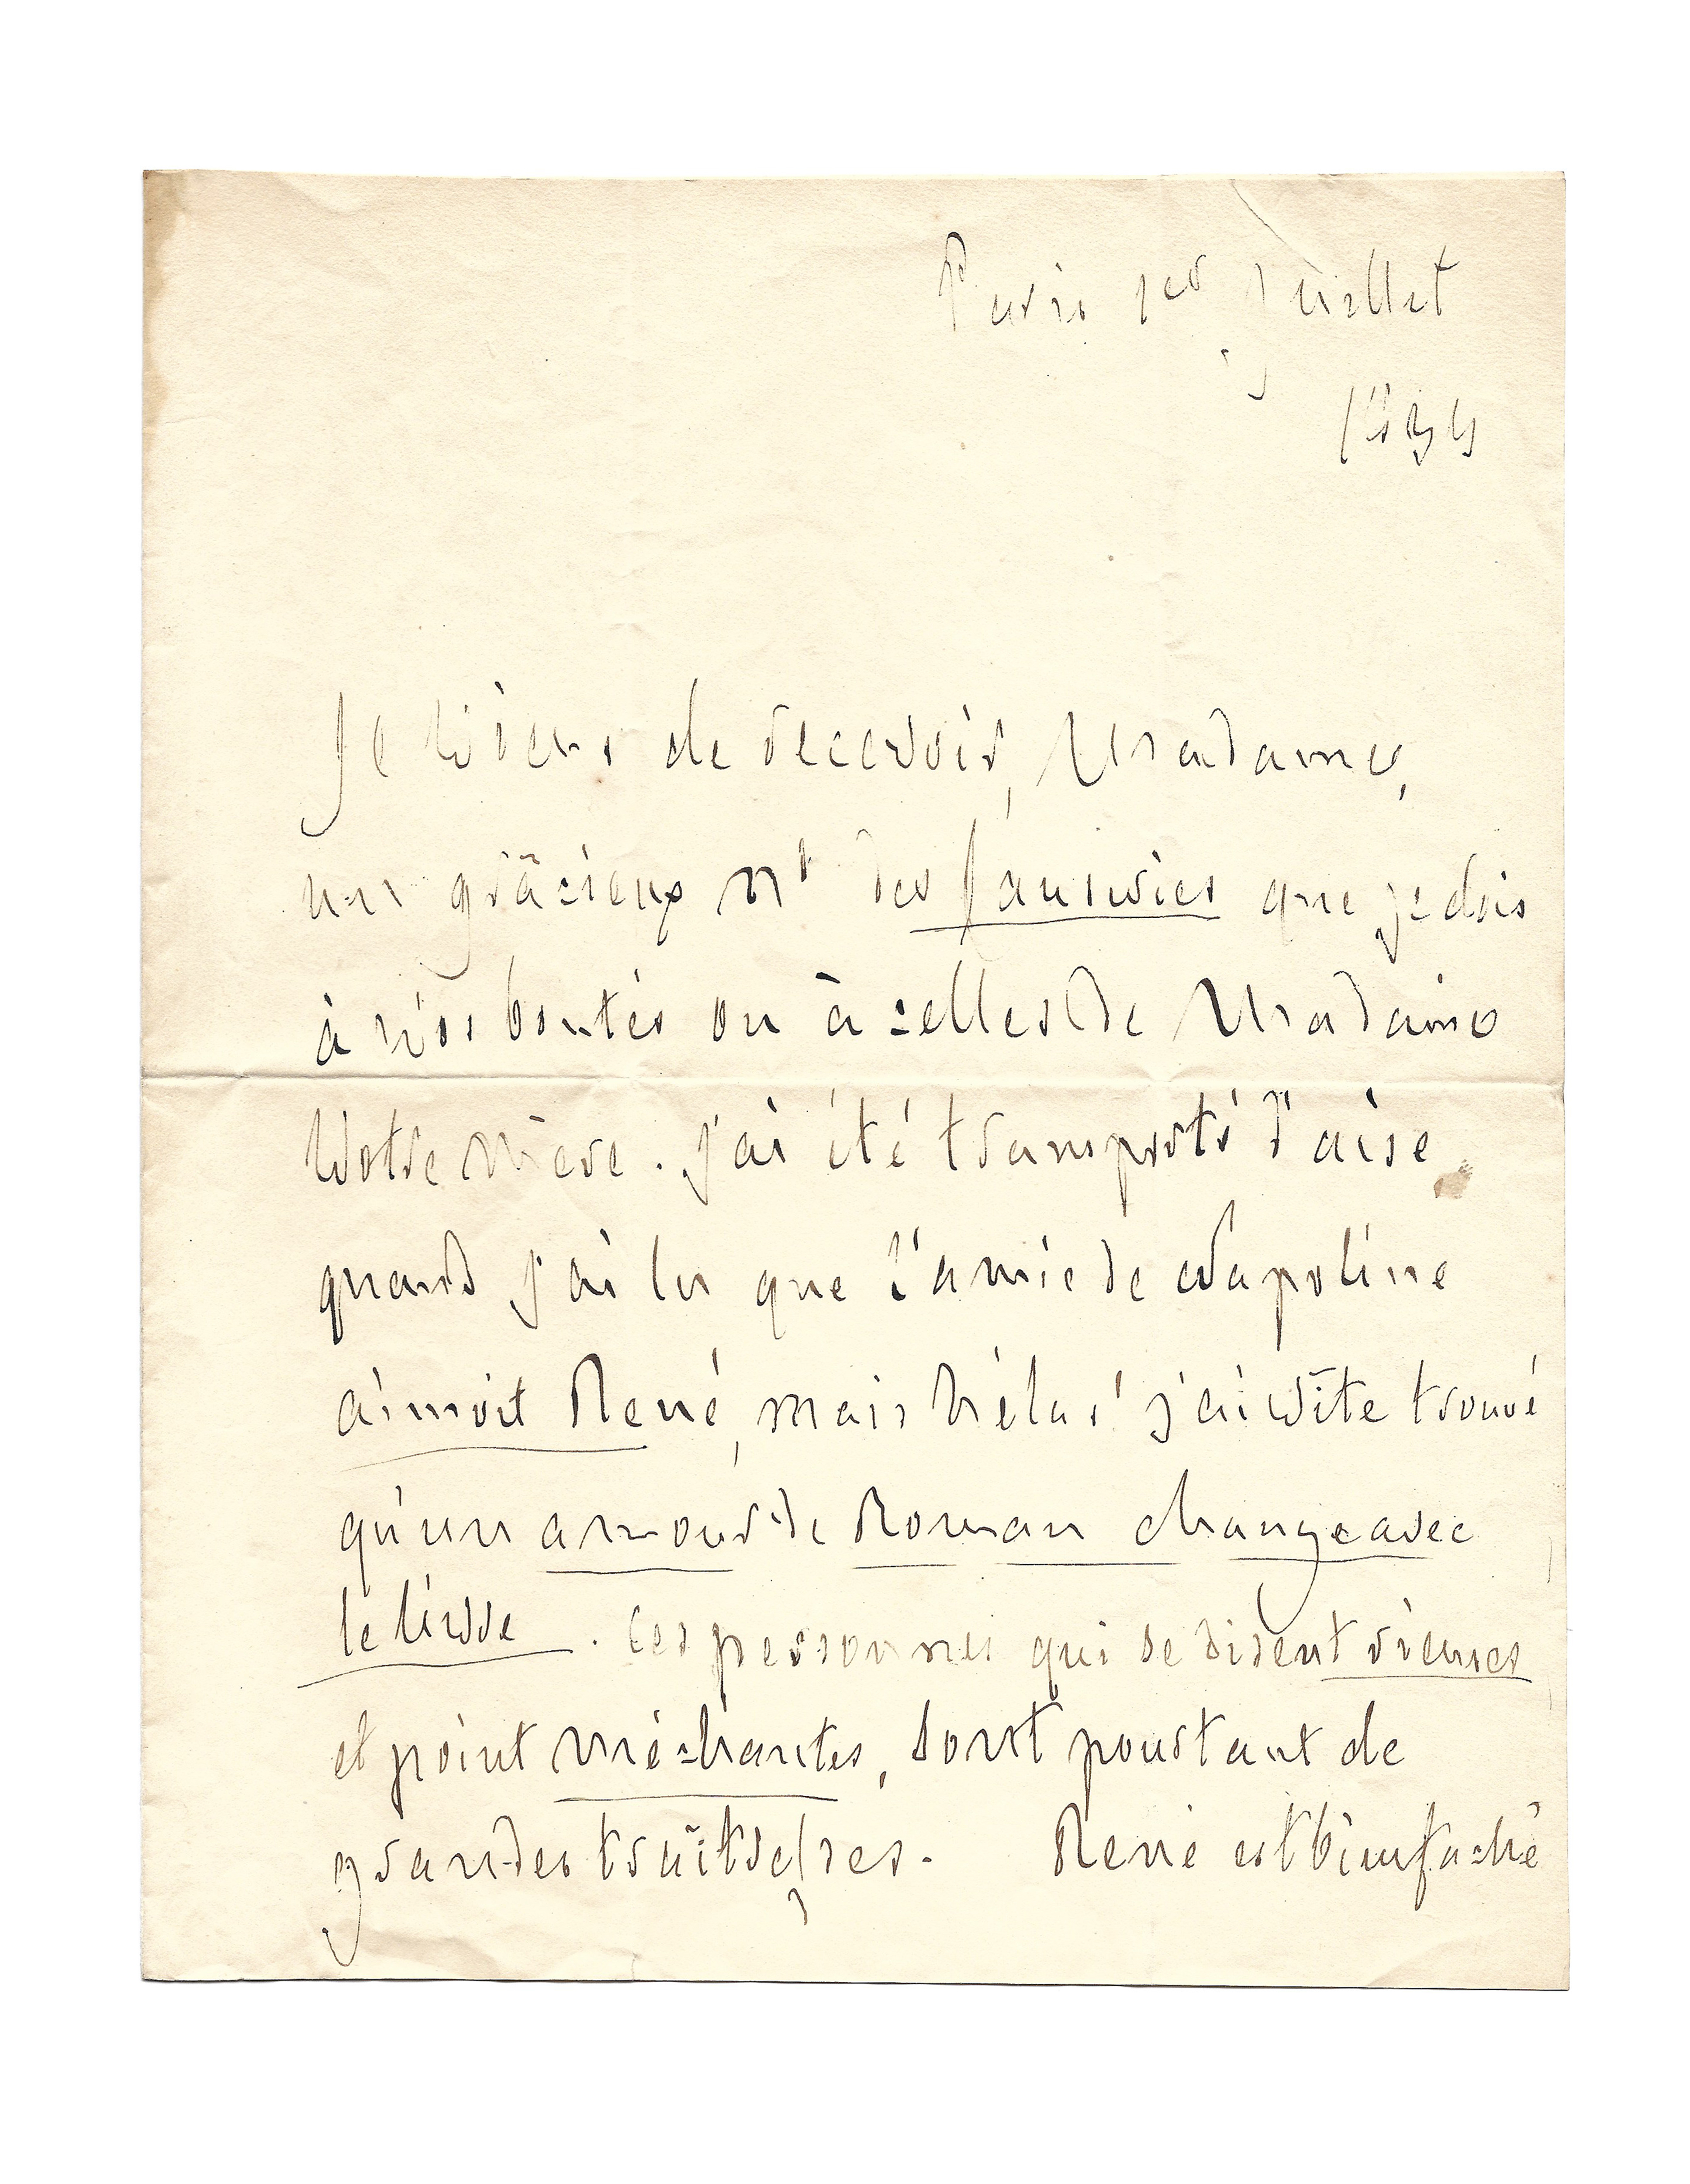 Paris 1er Juillet
1834
Je viens de recevoir, Madame,
un gracieux Nº des que je dois
à vos bontés ou à celles de Madame
Votre mère. j'ai été transporté d'aise
quand j'ai lu que l'amie de Napoline
aimoit René, mais hélas! j'ai vite trouvé
qu'un amour de Roman change avec
le livre. Les personnes qui se disent rieuses
et point méchantes, sont pourtant de
grandes traîtresses. René est bien fâché